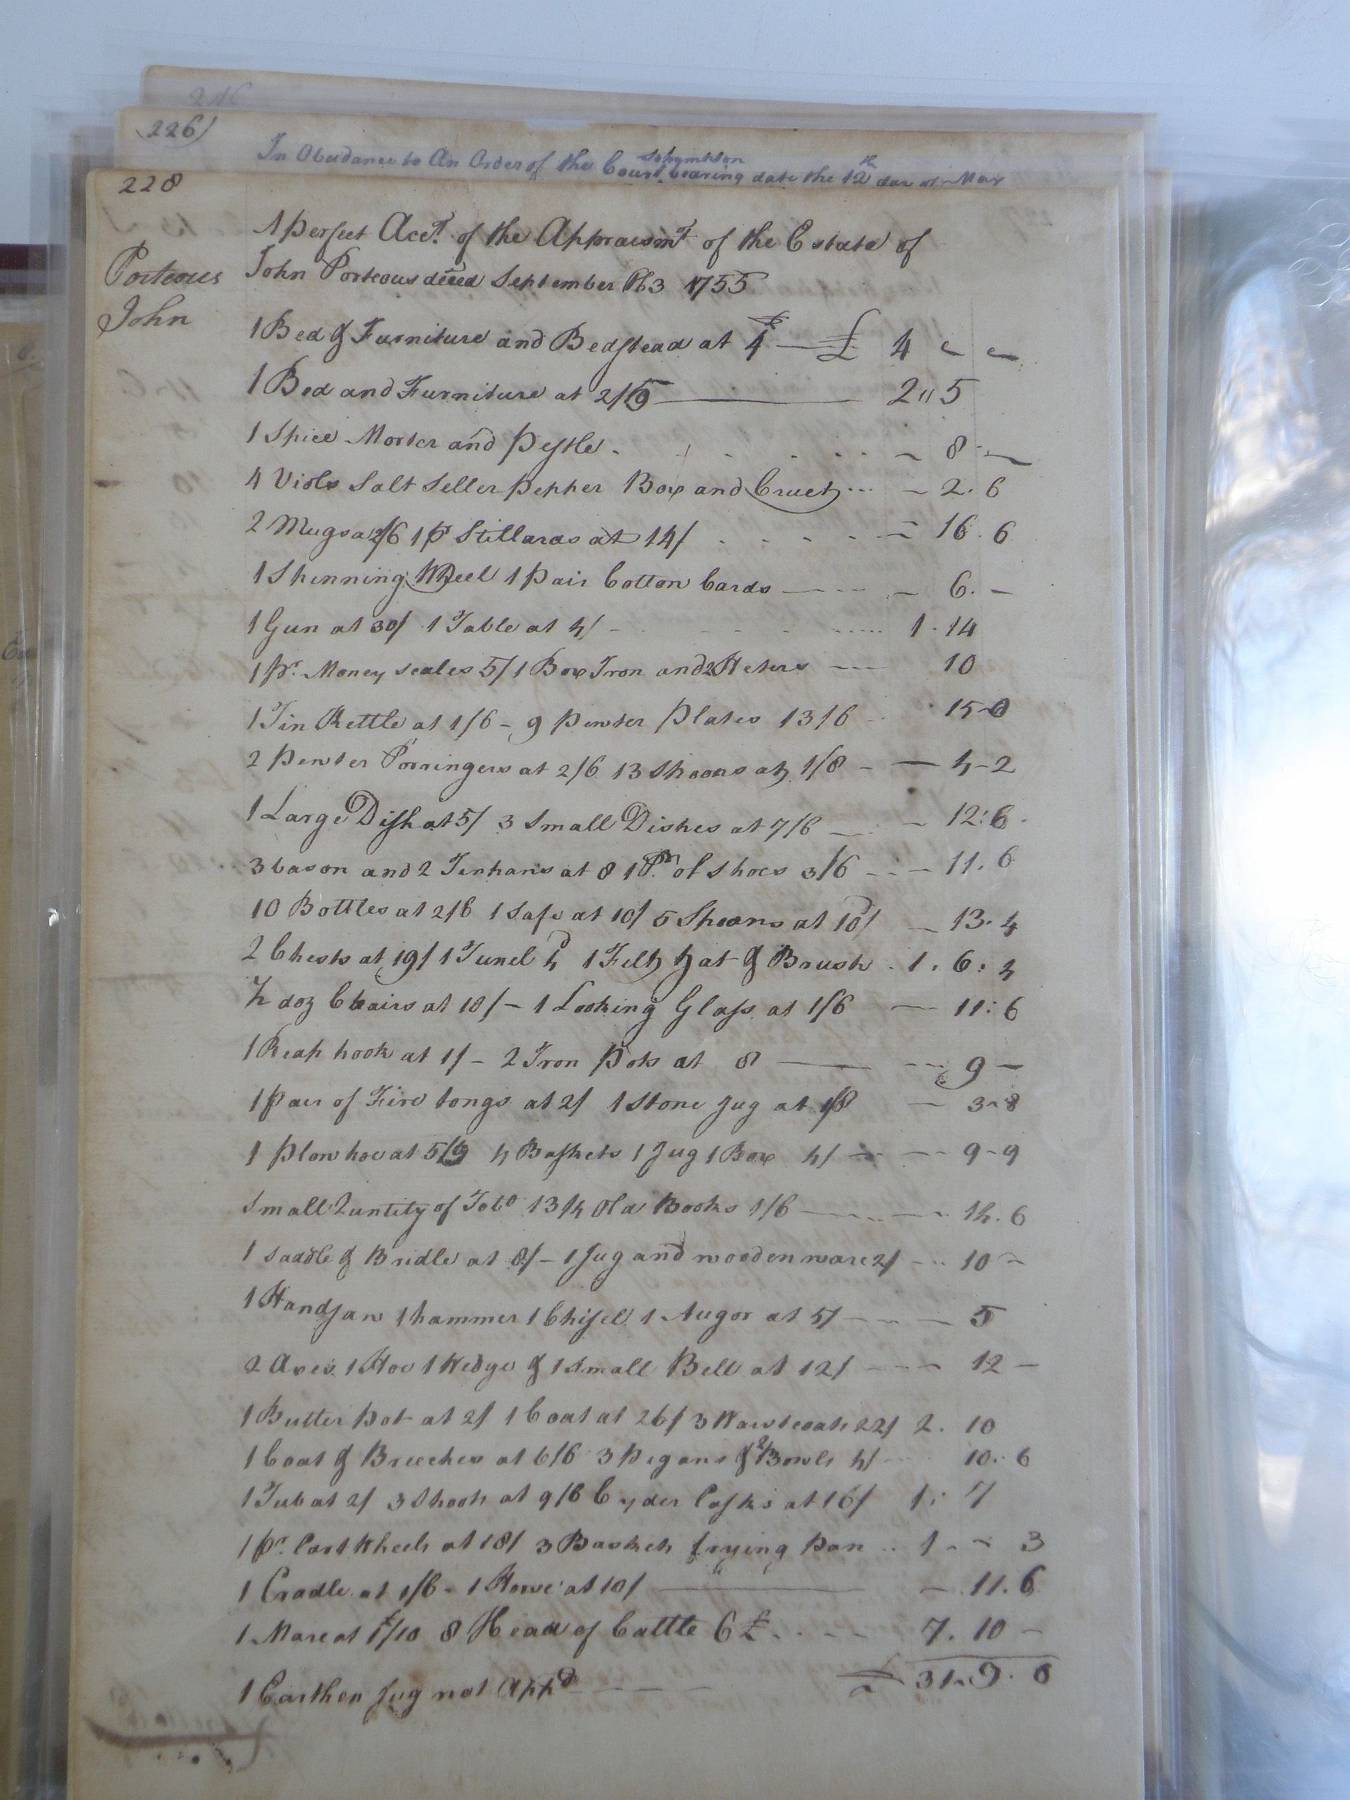 226
In Obediance to An Order of the Court bearing date the 12th day of May
228
Porteous
John
A Perfect Acct. of the Appraismt of the Estate of
John Porteous deced September 1755
1 Bed & Furniture and Bedstead at 4 — £ 4
1 Bed and Furniture at 2/5 2 " 5
1 Spice Morter and Pestle . 8 —
4 Viols Salt Seller pepper Box and Cruet — 2 . 6
2 Mugs a 2/6 1 pr Stillards at 14/ 16 . 6
1 Spinning Wheel 1 pair Cotton Cards — 6 . —
1 Gun at 30/ 1 Table at 4/ - 1 . 14
1 pr. Money scales 5/ 1 Box Iron and 2 Heters 10
1 Tin Kettle at 1/6 - 9 Pewter Plates 13/6 15 - 0
2 Pewter Porringers at 2/6 13 Spoons at 1/8 — 4 - 2
1 Large Dish at 5/ 3 Small Dishes at 7/6 — 12 : 6
3 bason and 2 Tinpans at 8 1 Pr. of Shoes 3/6 — 11 . 6
10 Bottles at 2/6 1 Safe at 10/ 5 Spoons at 10d/ — 13 . 4
2 Chests at 19/ 1 Tunel 4d 1 Felt hat & Brush . 1 . 6 : 4
½ doz Chairs at 10/ - 1 Looking Glass at 1/6 — 11 : 6
1 Reap hook at 1/ - 2 Iron Pots at 8 — 9 —
1 Pair of Fire tongs at 2/ 1 Stone Jug at 1/8 — 3 - 8
1 Plow hoe at 5/9 4 Baskets 1 Jug 1 Box 4/ — 9 - 9
Small Quntity of Tobo 13/4 Old Books 1/6 — 14 . 6
1 Saddle & Bridle at 8/ - 1 Jug and wooden ware 2/ 10 -
1 Handsaw 1 hammer 1 Chisel 1 Augor at 5/ — 5
2 Axes 1 Hoe 1 Wedge & 1 Small Bell at 12/ — 12 —
1 Butter Pot at 2/ 1 Coat at 26/ 3 Waistcoats 22/ 2 . 10
1 Coat & Breeches at 6/6 3 Pigans & 2 Bowls 4/ 10 . 6
1 Tub at 2/ 3 at 9/6 Cyder Casks at 16/ 1 : 7
1 pr. Cart Wheels at 18/ 3 Baskets frying Pan .. 1 - - 3
1 Cradle at 1/6 - 1 at 10/ — 11 . 6
1 Mare at 1£/10 8 Head of Cattle 6 £ 7 . 10 -
1 Earthen Jug not Appd — £ 31 . 9 . 8